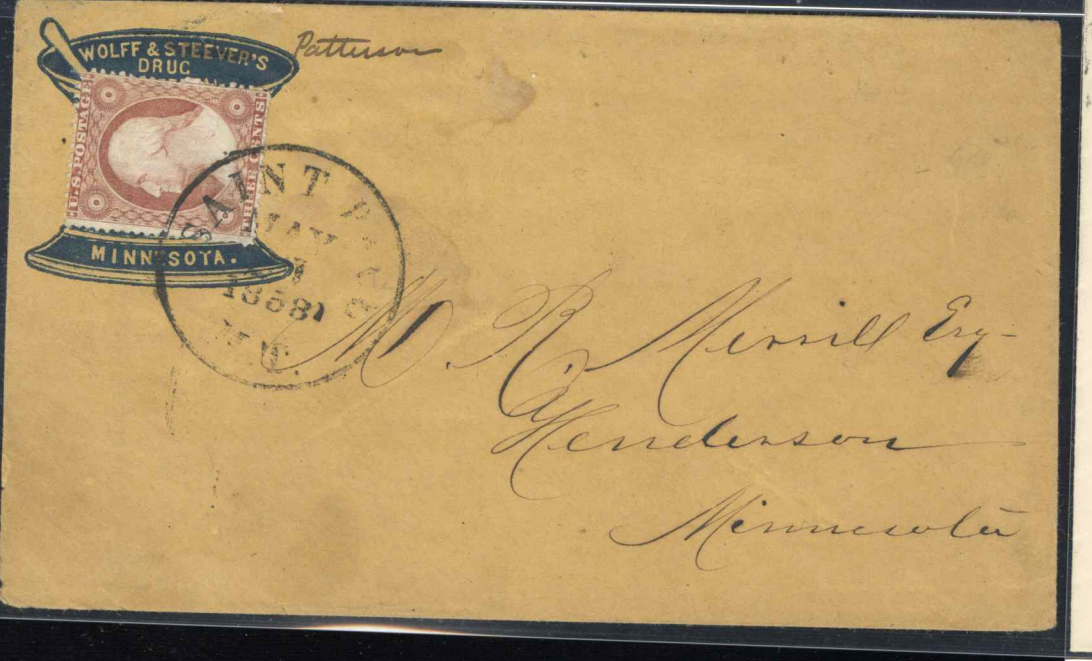 WOLFF & STEEVER'S
DRUG
Patterson
U.S. POSTAGE
THREE CENTS
MINNESOTA.
SAINT PAUL
MAY
1
1858
M.T.
M. R. Merrill Esq
Henderson
Minnesota